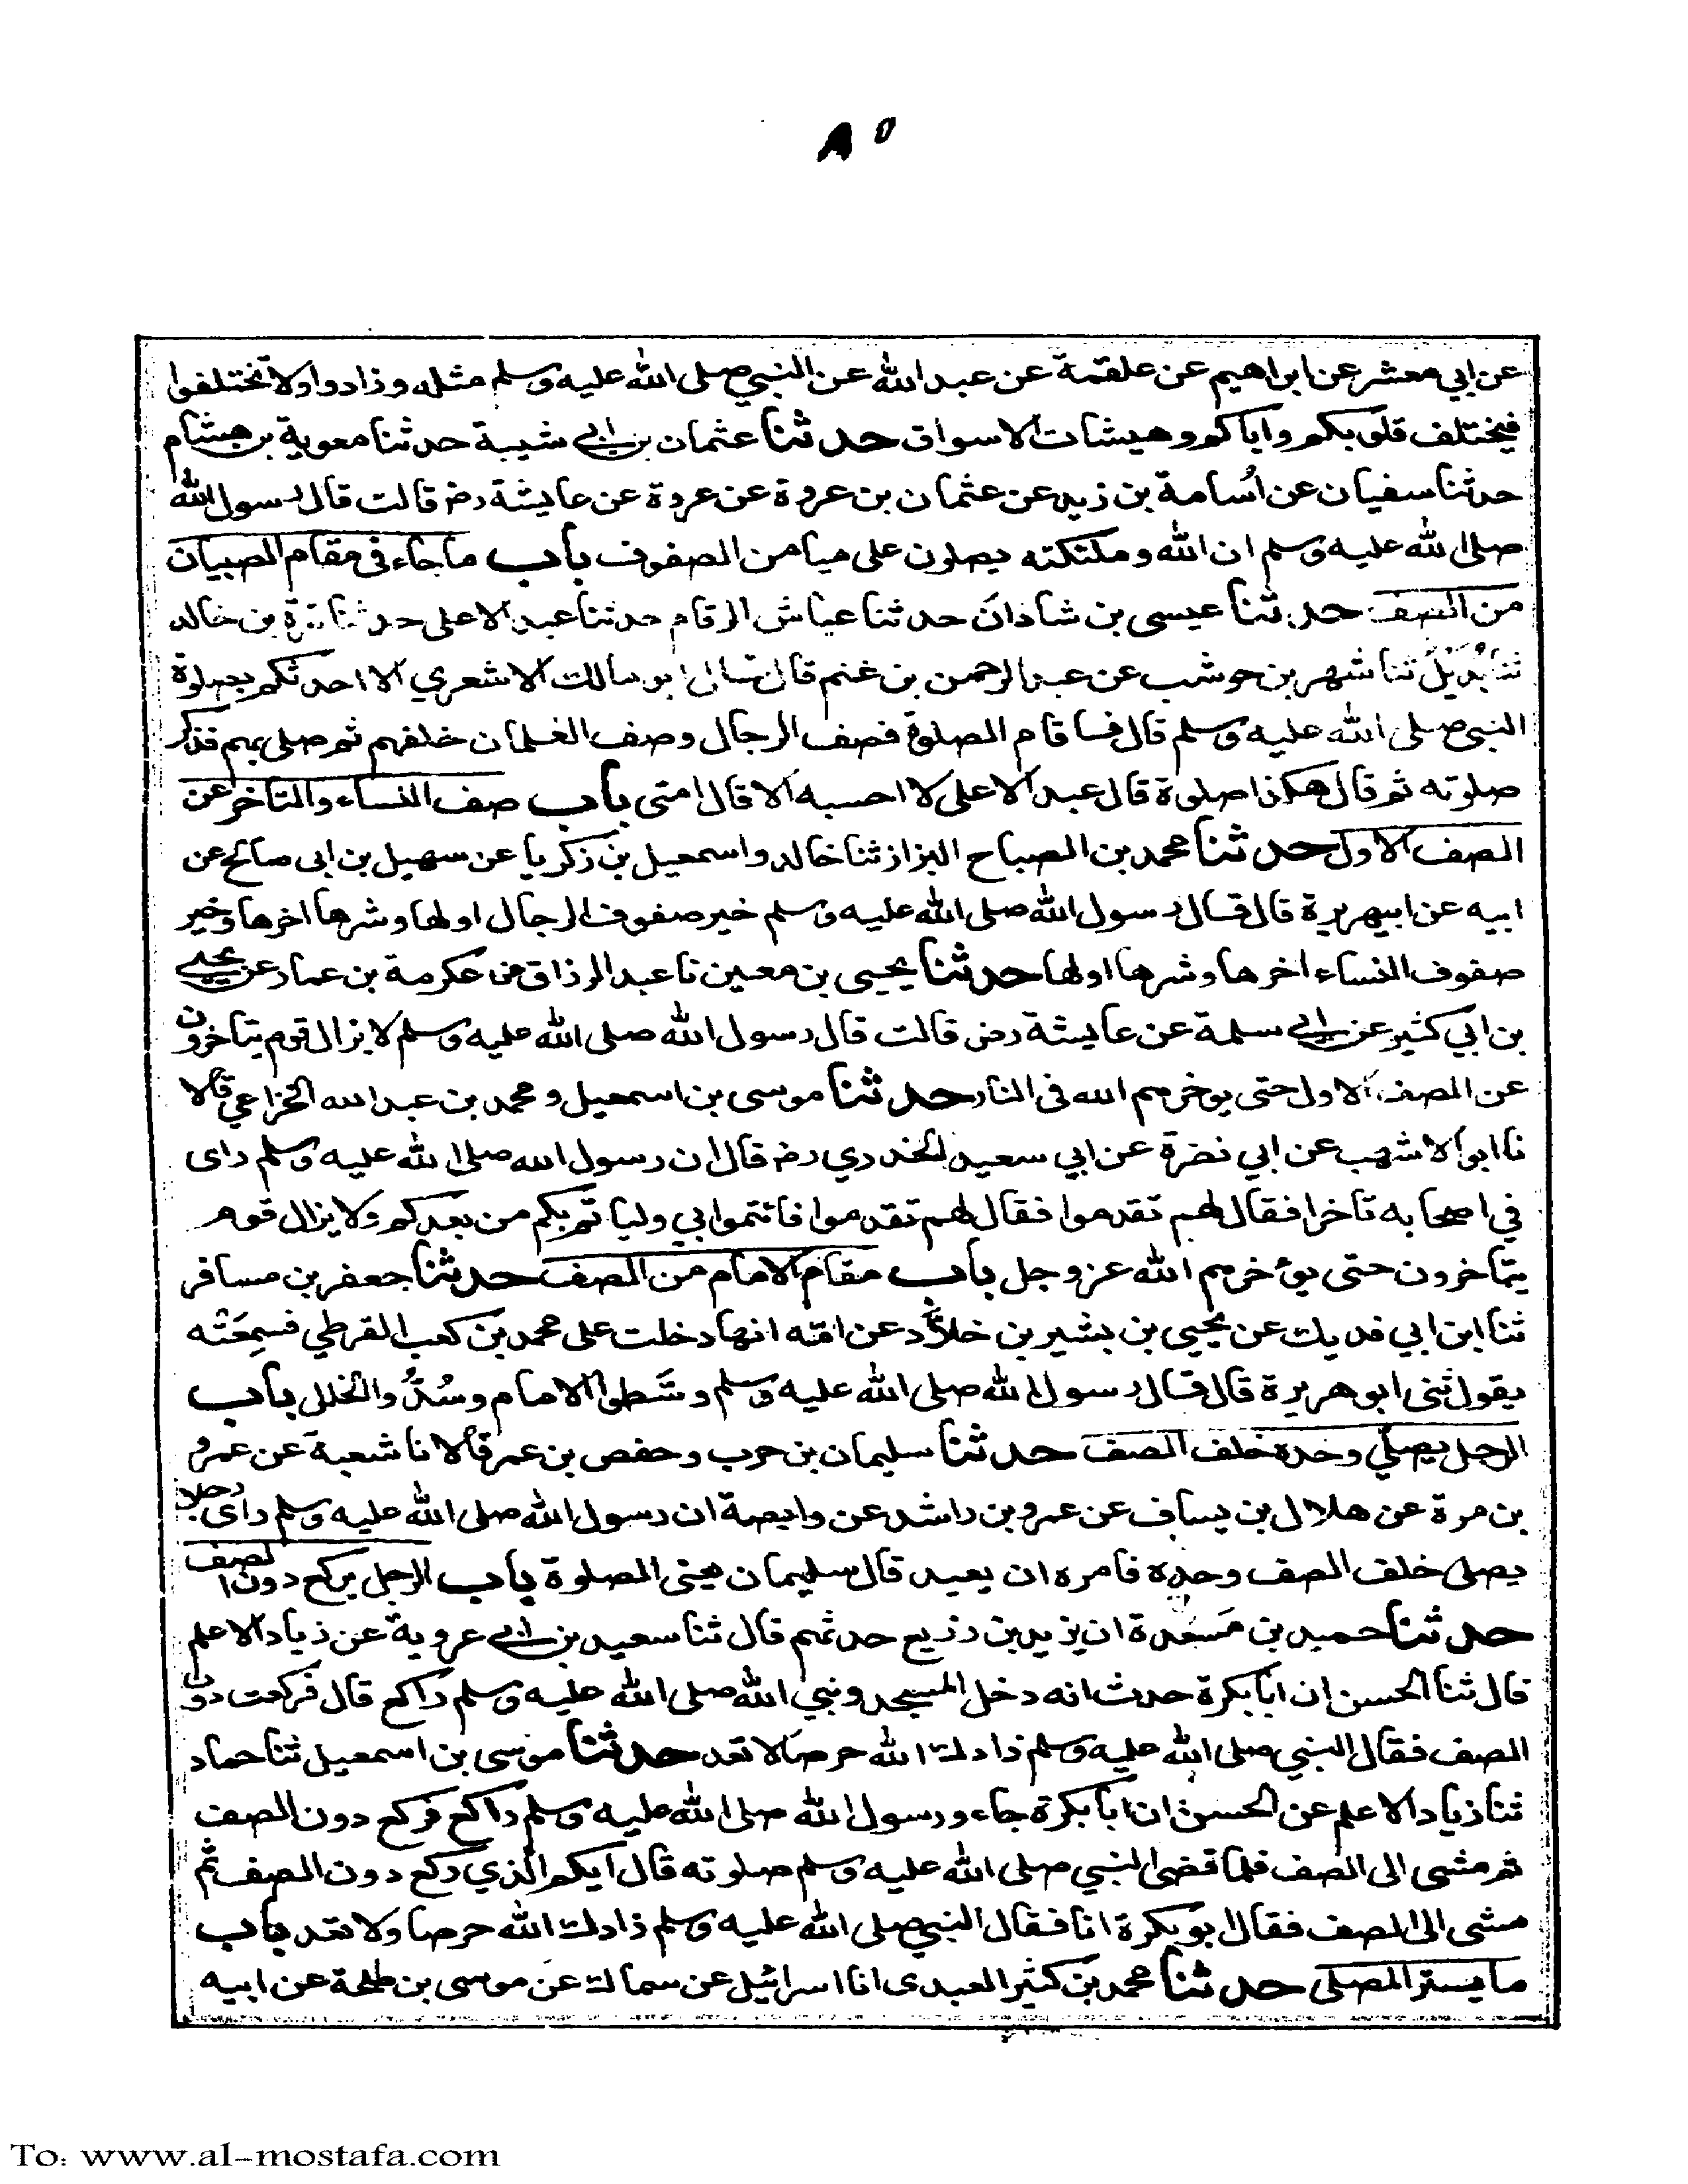 ٨٥
عن ابي معشر عن ابراهيم عن علقمة عن عبد الله عن النبي صلى الله عليه وسلم مثله وزاد ولا تختلفوا
فيختلف قلوبكم واياكم وهيشات الاسواق حدثنا عثمان بن ابي شيبة حدثنا معوية بن هشام
حدثنا سفيان عن اُسامة بن زيد عن عثمان بن عروة عن عروة عن عايشة رضـ قالت قال رسول الله
صلى الله عليه وسلم ان الله وملئكته يصلون على ميامن الصفوف باب ما جاء في مقام الصبيان
من الصف حدثنا عيسى بن شاذان حدثنا عياش الرقام حدثنا عبد الاعلى حدثنا قرة بن خالد
ثنا بُدَيْلٌ ثنا شهر بن حوشب عن عبد الرحمن بن غنم قال قال ابو مالك الاشعري الا احدثكم بصلوة
النبي صلى الله عليه وسلم قال فاقام الصلوة فصف الرجال وصف الغلمان خلفهم ثم صلى بهم فذكر
صلوته ثم قال هكذا صلوة قال عبد الاعلى لا احسبه الا قال امتي باب صف النساء والتاخر عن
الصف الاول حدثنا محمد بن الصباح البزاز ثنا خالد واسمعيل بن زكريا عن سهيل بن ابى صالح عن
ابيه عن ابيهريرة قال قال رسول الله صلى الله عليه وسلم خير صفوف الرجال اولها وشرها اخرها وخير
صفوف النساء اخرها وشرها اولها حدثنا يحيى بن معين نا عبد الرزاق عن عكرمة بن عمار عن يحيى
بن ابي كثير عن ابي سلمة عن عايشة رضـ قالت قال رسول الله صلى الله عليه وسلم لا يزال قوم يتاخرون
عن الصف الاول حتى يوخرهم الله في النار حدثنا موسى بن اسمعيل ومحمد بن عبد الله الخزاعي قالا
نا ابو الاشهب عن ابي نضرة عن ابي سعيد الخدري رضـ قال ان رسول الله صلى الله عليه وسلم راى
في اصحابه تاخرا فقال لهم تقدموا فقال لهم تقدموا فائتموا بي ولياتم بكم من بعدكم ولا يزال قوم
يتاخرون حتى يؤخرهم الله عز وجل باب مقام الامام من الصف حدثنا جعفر بن مسافر
ثنا ابن ابي فديك عن يحيى بن بشير بن خلاّد عن امّه انها دخلت على محمد بن كعب القرظي فسمِعَتْه
يقول ثنى ابو هريرة قال قال رسول الله صلى الله عليه وسلم وسَّطوا الامام وسُدُّوا الخلل باب
الرجل يصلي وحده خلف الصف حدثنا سليمان بن حرب وحفص بن عمر قالا نا شعبة عن عمرو
بن مرة عن هلال بن يساف عن عمرو بن راشد عن وابصة ان رسول الله صلى الله عليه وسلم راى رجلا
يصلى خلف الصف وحده فامره ان يعيد قال سليمان يعني الصلوة باب الرجل يركع دون الصف
حدثنا حميد بن مَسعَدة ان يزيد بن زريع حدثهم قال ثنا سعيد بن ابي عروبة عن زياد الاعلم
قال ثنا الحسن ان ابا بكرة حدث انه دخل المسجد ونبي الله صلى الله عليه وسلم راكع قال فركعت دون
الصف فقال النبي صلى الله عليه وسلم زادك الله حرصا لا تعد حدثنا موسى بن اسمعيل ثنا حماد
ثنا زياد الاعلم عن الحسن ان ابا بكرة جاء ورسول الله صلى الله عليه وسلم راكع فركع دون الصف
ثم مشى الى الصف فلما قضى النبي صلى الله عليه وسلم صلوته قال ايكم الذي ركع دون الصف ثم
مشى الى الصف فقال ابو بكرة انا فقال النبي صلى الله عليه وسلم زادك الله حرصا ولا تعد باب
ما يستر المصلى حدثنا محمد بن كثير العبدى انا اسرائيل عن سماك عن موسى بن طلحة عن ابيه
To: www.al-mostafa.com